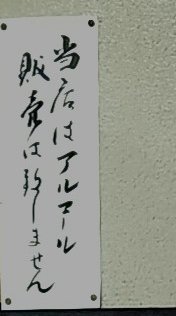 当店はアルコール
販売は致しません